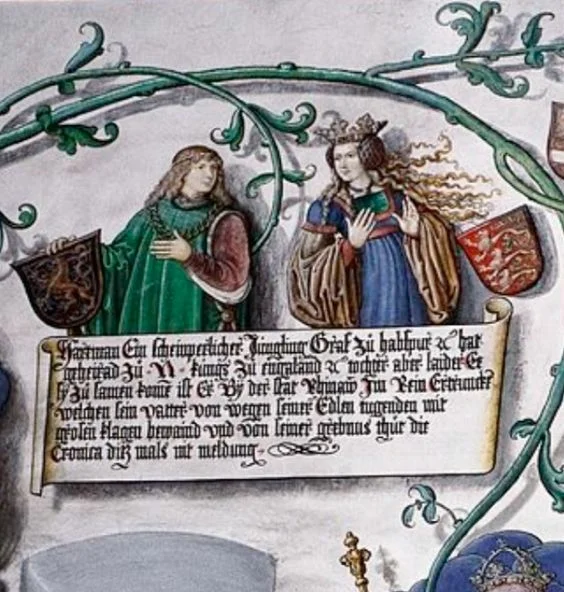 Hartman Ein scheinperlicher Jüngling Graf zü habspurg ꝛc hat
geheirad Zü N. künigs zü engeland ꝛc tochter aber laider Ee
sy zü samen kome ist Er By der stat Rhinaw Jm Rein Ertrunckē
welchen sein vatter von wegen seiner Edlen tugenden mit
grosen klagen bewaind vnd von seiner grebnus thüt die
Cronica diß mals nit meldung